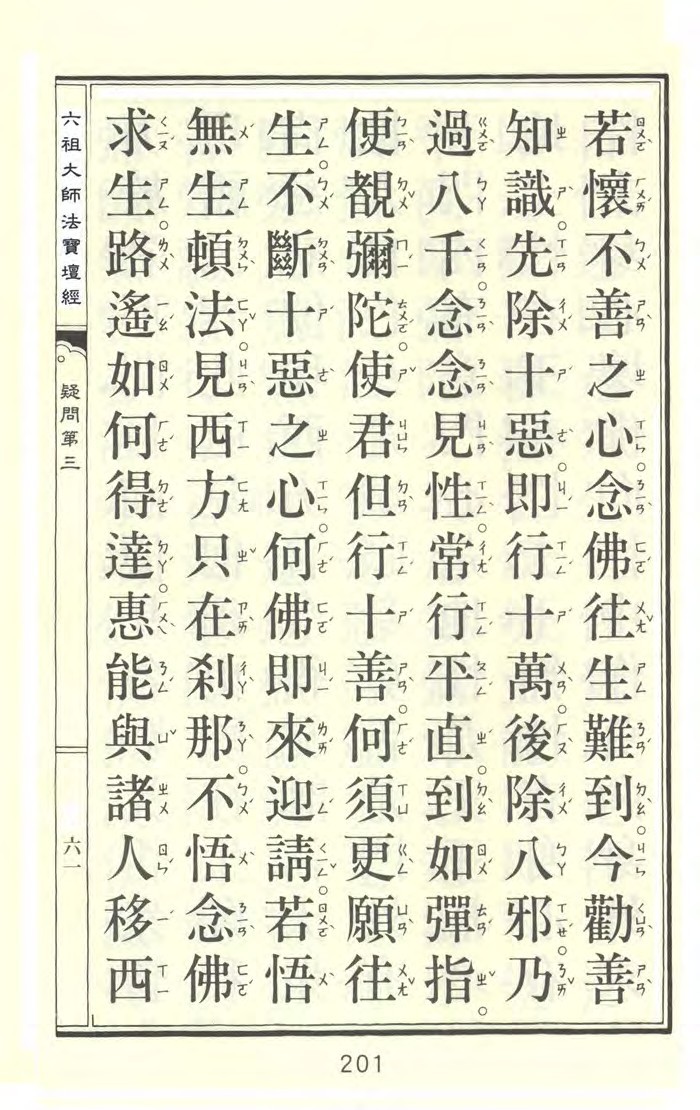 若懷不善之心。念佛往生難到。今勸善
知識。先除十惡。即行十萬。後除八邪。乃
過八千。念念見性。常行平直。到如彈指。
便覩彌陀。使君但行十善。何須更願往
生。不斷十惡之心。何佛即來迎請。若悟
無生頓法。見西方只在剎那。不悟念佛
求生。路遙如何得達。惠能與諸人移西
六祖大師法寶壇經
疑問第三
六一
201